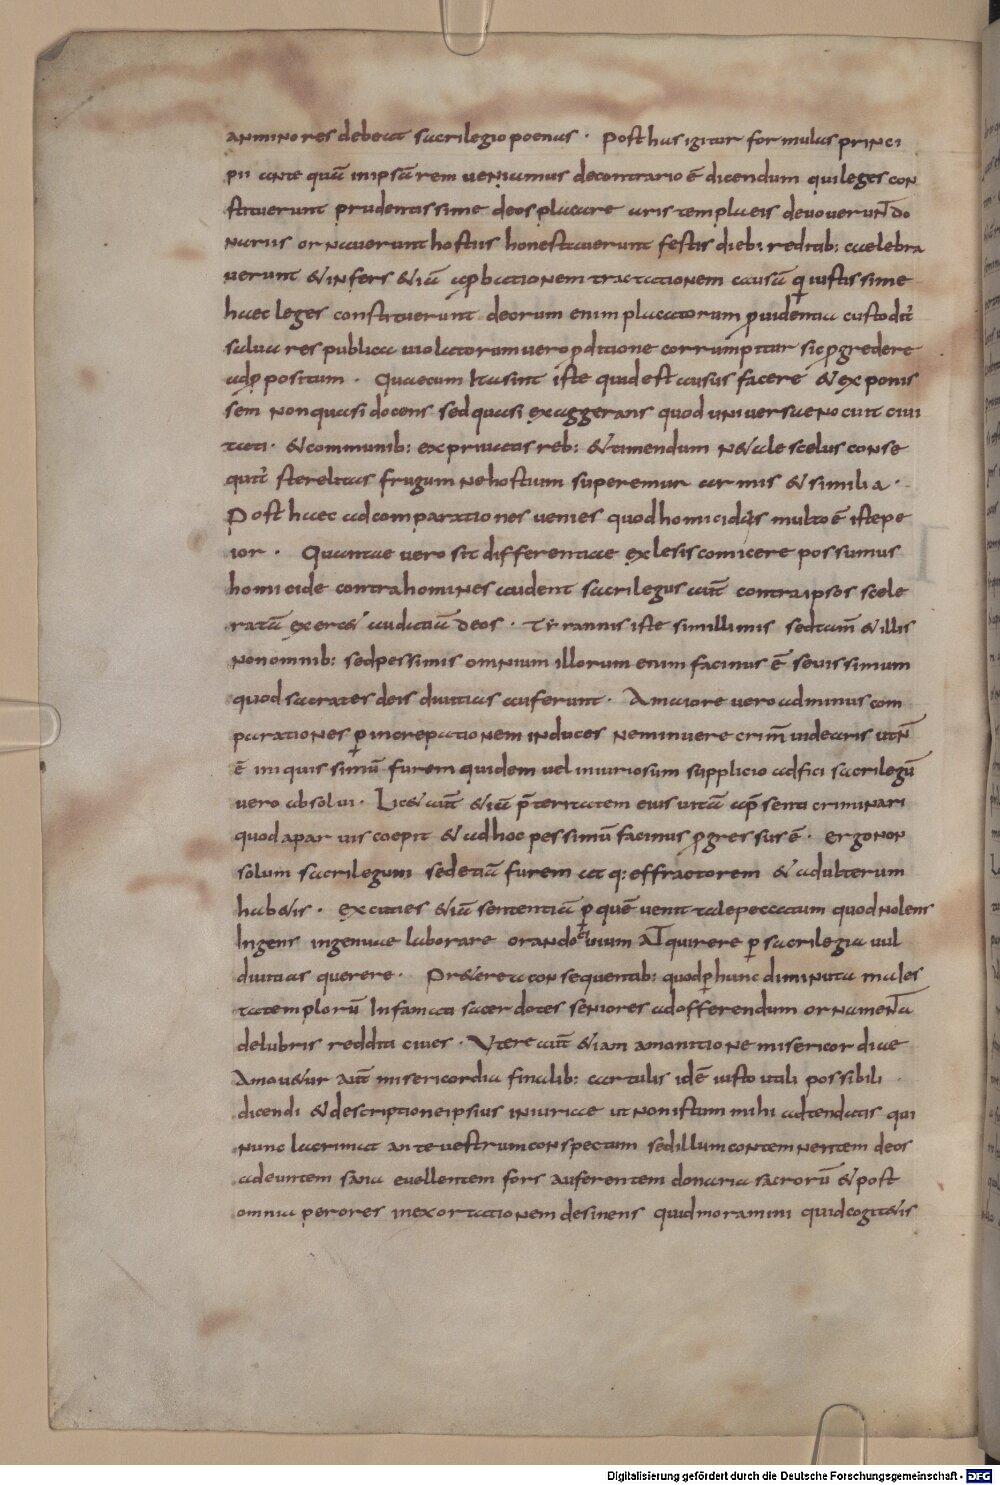 an minores debeat sacrilegio poenas · Post has igitur formulas princi
pii ante quā in ipsā rem veniamus de contrario ē dicendum qui leges con
stituerunt prudentissime deos placare aris templa eis devoverunt̄ do
nariis ornaverunt hostiis honestaverunt festis dieb: reditab: caelebra
verunt & infers & iā ap̄bationem tractationem causā q̄ iustissime
haec leges constituerunt deorum enim placatorum p̄videntia custodit̄
salva res publica violatorum vero p̄ditione corrumpitur sic p̄gredere
ad p̄positum · Quae cum ita sint iste quid est ausus facere & exponis
sem non quasi docens sed quasi exaggerans quod universae nocuit civi
tati · & communib: ex privatis reb: & timendum ne & ale scelus conse
quit̄ sterelitas frugum ne hostium superemur armis & similia ·
Post haec ad comparationes venies quod homicidis multo ē iste pe
ior · Quantae vero sit differentiae ex lesis comicere possumus
homicide contra homines audent sacrilegus aut̄ contra ipsos scele
ratā exerc& audatiā deos · Tyrannis iste simillimis sed tam̄ & illis
non omnib: sed pessimis omnium illorum enim facinus ē sevissimum
quod sacrates deis divitias auferunt · A maiore vero ad minus com
parationes p̄ increpationem induces ne minuere crim̄ videaris utn̄
ē iniquissimū furem quidem vel iniuriosum supplicio adfici sacrilegū
vero absolvi · Lic& aut̄ & iā p̄teritatem eius vitā ap̄senti criminari
quod a parvis coepit & ad hoc pessimū facinus p̄gressus ē · ergo non
solum sacrilegum sed etiā furem atq: effractorem & adulterum
hab&is · excuties & iā sententiā p̄ quē venit tale peccatum quod nolens
Ingens ingenuae laborare orando cibium adquirere p̄ sacrilegia vul
divitias querere · Pr&erea consequentib: quod p̄ hunc diminuta males
ta templorū Infamati sacerdotes seniores ad offerendum ornament̄a
delubris redditi cives · Utere aut̄ & iam amonitione misericordiae
Amov&ur aut̄ misericordia finalib: cartulis idē iusto utili possibili
dicendi & descriptione ipsius iniuriae ut non istam mihi adtendatis qui
nunc lacrimat ante vestrum conspectum sed illum contemnentem deos
adeuntem fana evellentem fors auferentem donaria sacrorū & post
omnia perores in exortationem desinens quid moramini quid cogit&is
Digitalisierung gefördert durch die Deutsche Forschungsgemeinschaft - DFG